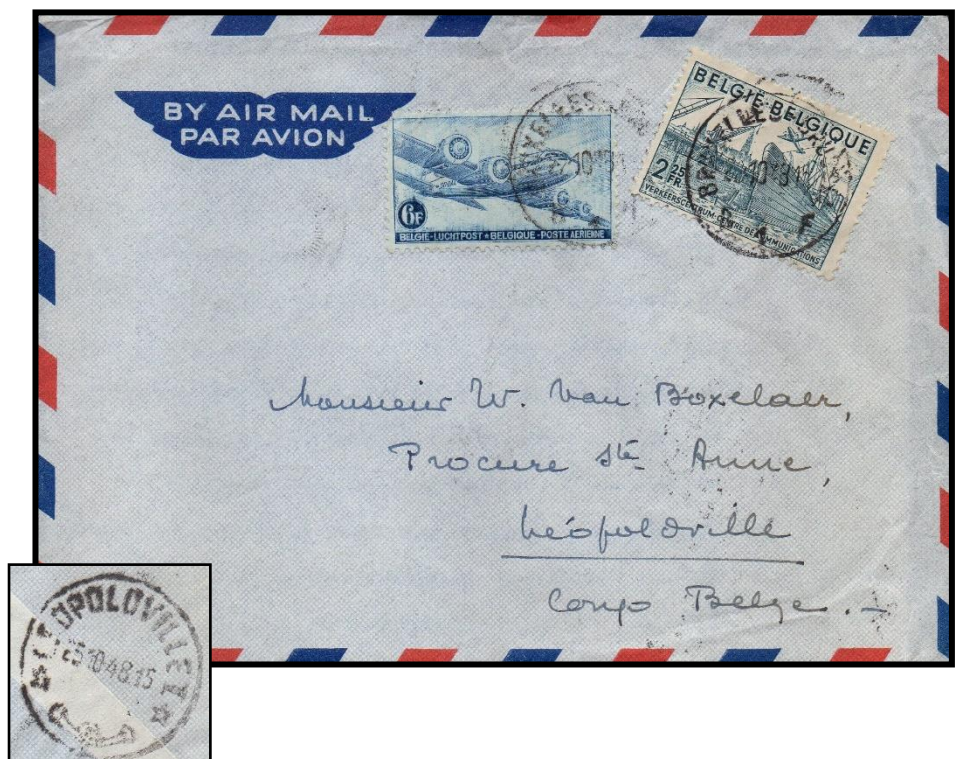 BY AIR MAIL
PAR AVION
6F
BELGIE-LUCHTPOST ★ BELGIQUE-POSTE AERIENNE
BELGIE-BELGIQUE
2 25
FR
VERKEERSCENTRUM-CENTRE DE COMMUNICATIONS
Monsieur W. Van Boxelaer,
Procure Ste Anne,
Léopoldville
Congo Belge.-
LEOPOLDVILLE 1
25.10.48.15